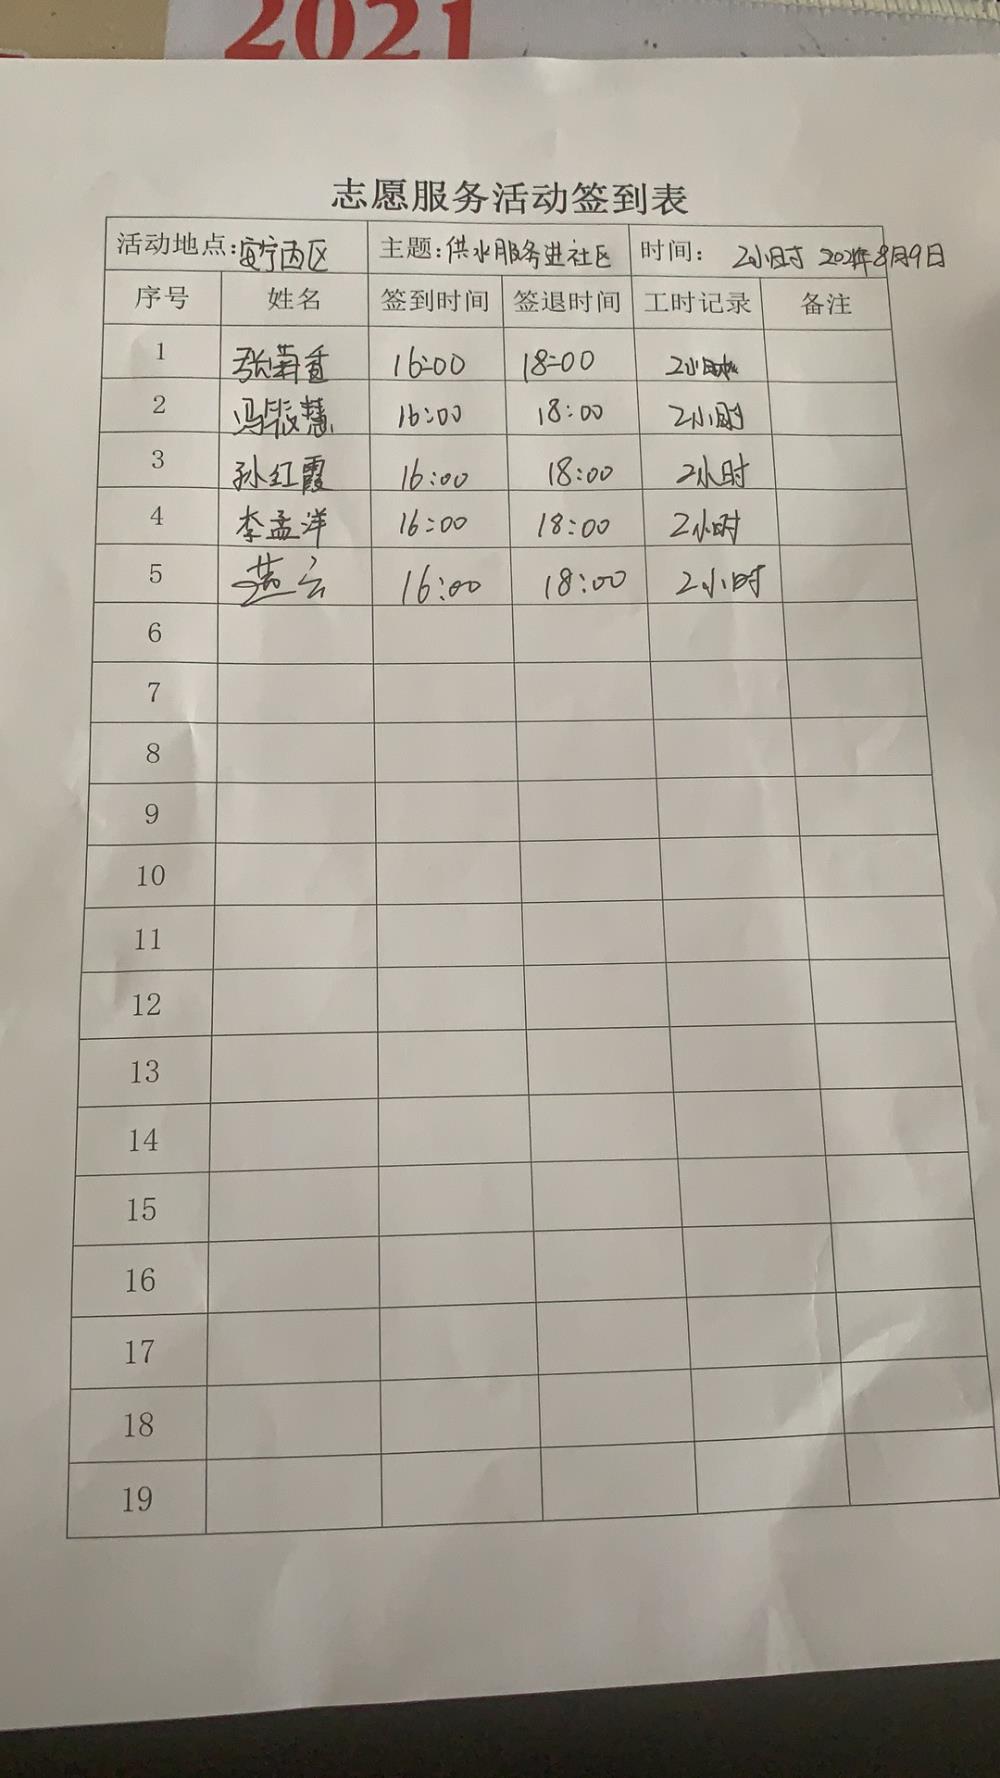 2021
志愿服务活动签到表
活动地点:安宁西区 主题:供水服务进社区 时间: 2小时 2021年8月9日
序号 姓名 签到时间 签退时间 工时记录 备注
1 张菊香 16:00 18:00 2小时
2 冯筱慧 16:00 18:00 2小时
3 孙红霞 16:00 18:00 2小时
4 李孟洋 16:00 18:00 2小时
5 16:00 18:00 2小时
6
7
8
9
10
11
12
13
14
15
16
17
18
19